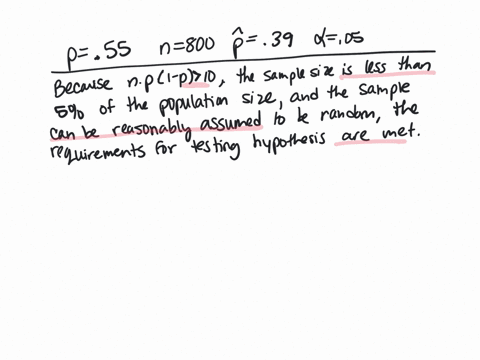 p=.55 n=800 p̂=.39 α=.05
Because n·p(1-p)>10, the sample size is less than
5% of the population size, and the sample
can be reasonably assumed to be random, the
requirements for testing hypothesis are met.